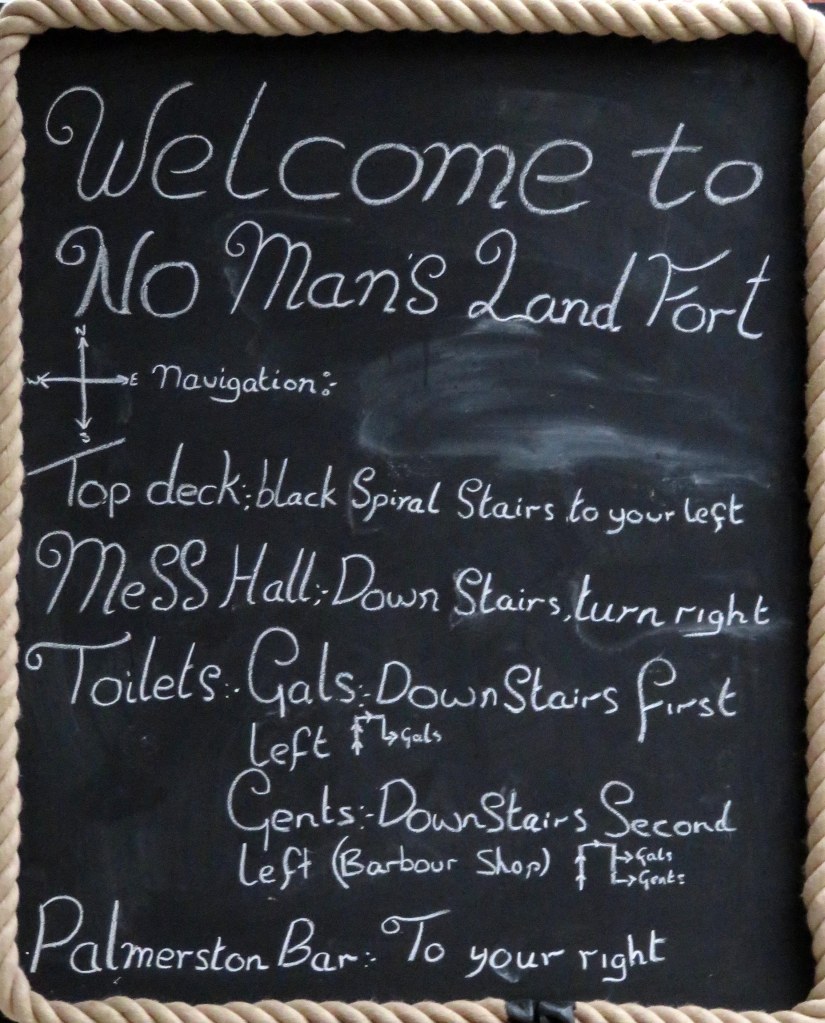 Welcome to
No Man's Land Fort
N
W E Navigation:-
S
Top deck:- black Spiral Stairs, to your left
Mess Hall:- Down Stairs, turn right
Toilets:- Gals:- Down Stairs first
left Gals
Gents:- Down Stairs Second
left (Barbour Shop) Gals
Gents
Palmerston Bar:- To your right